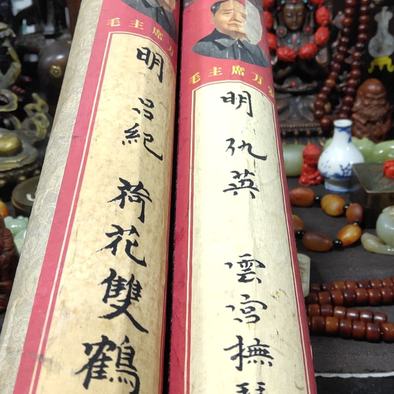 毛主席万
明 吕纪 荷花雙鶴
毛主席万
明 仇英 雲宮撫